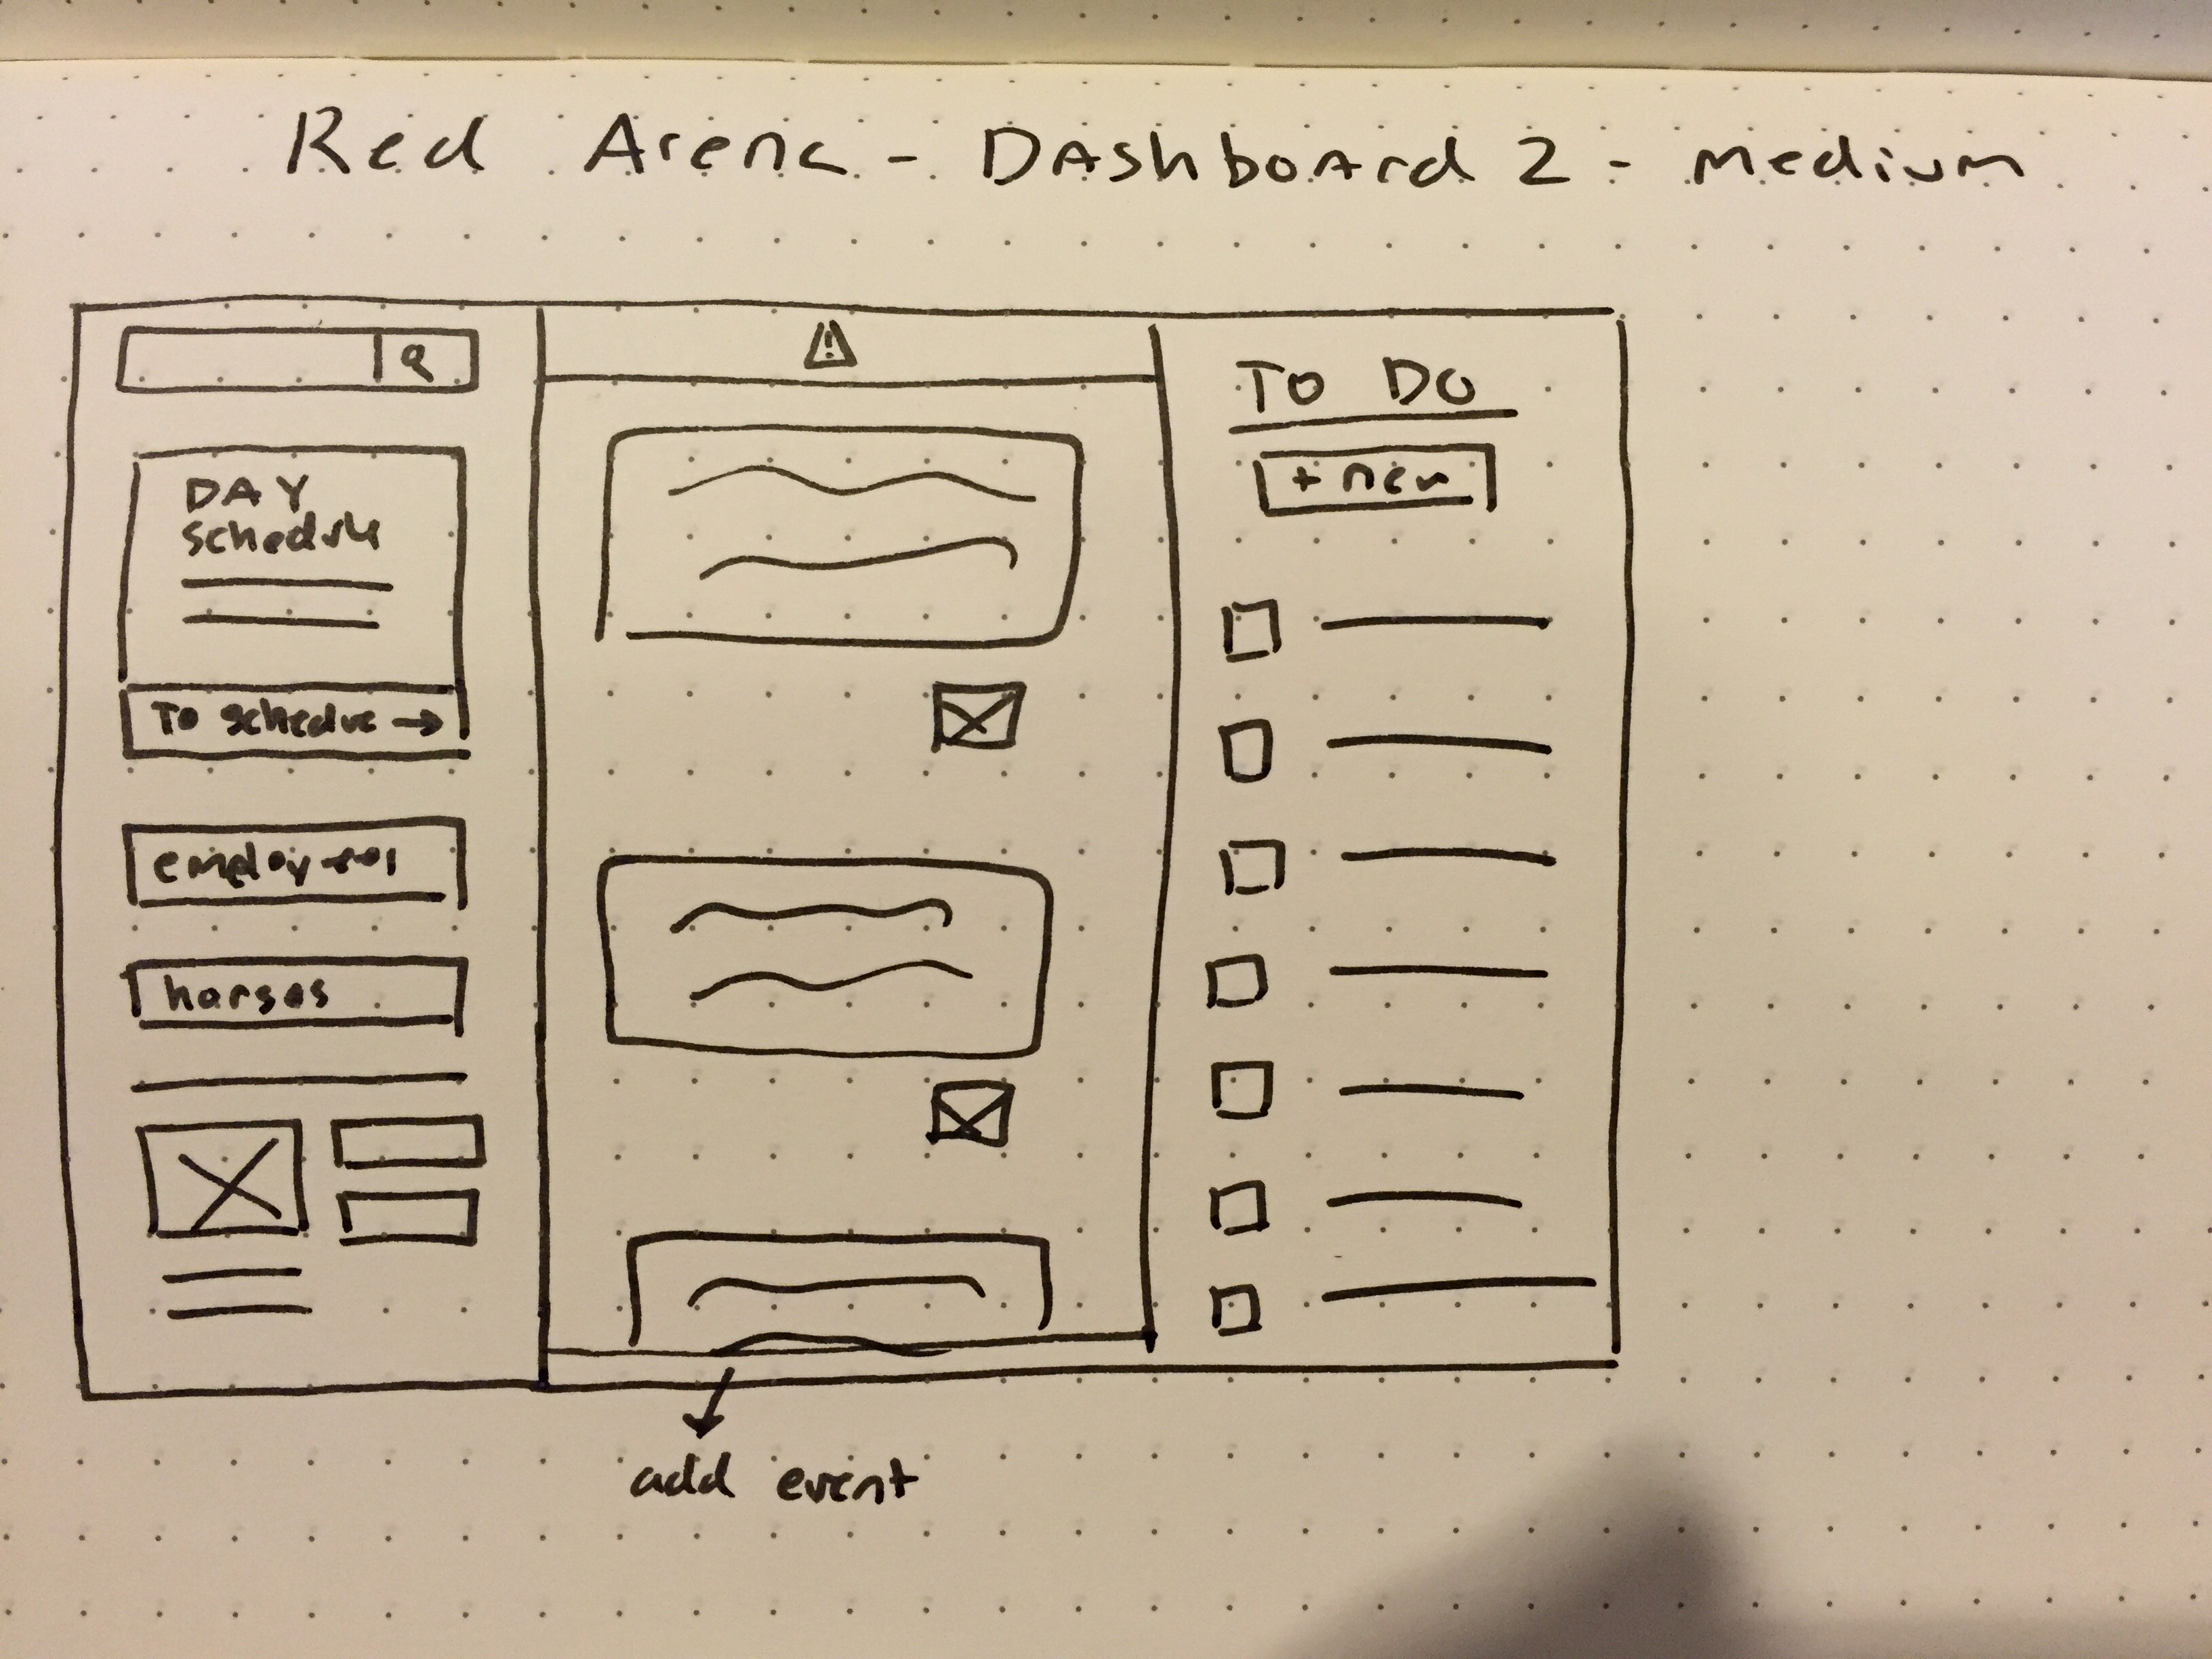 Red Arena - DAshboard 2 - medium
DAY
schedule
To schedule →
employees
horses
TO DO
+ new
add event